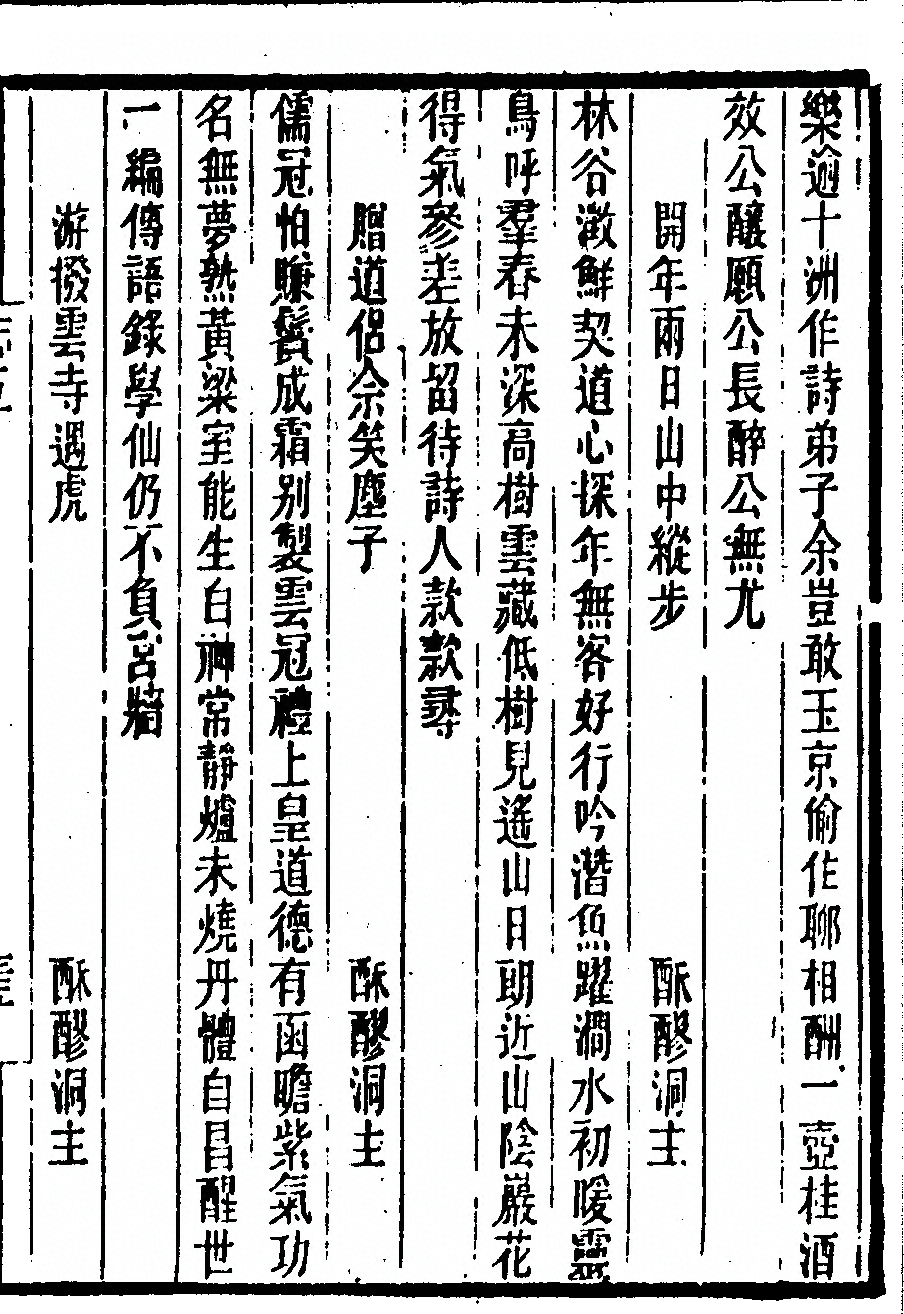 樂逾十洲作詩弟子余豈敢玉京偷作聊相酬一壺桂酒
效公釀願公長醉公無尤
開年雨日山中縱步 酥醪洞主
林谷澂鮮契道心探年無客好行吟潛魚躍澗水初暖靈
鳥呼羣春未深高樹雲藏低樹見遙山日朗近山陰巖花
得氣參差放留待詩人款款尋
贈道侶佘笑塵子 酥醪洞主
儒冠怕賺鬢成霜別製雲冠禮上皇道德有函瞻紫氣功
名無夢熟黃粱室能生白神常靜爐未燒丹體自昌醒世
一編傳語錄學仙仍不負宮牆
游撥雲寺遇虎 酥醪洞主